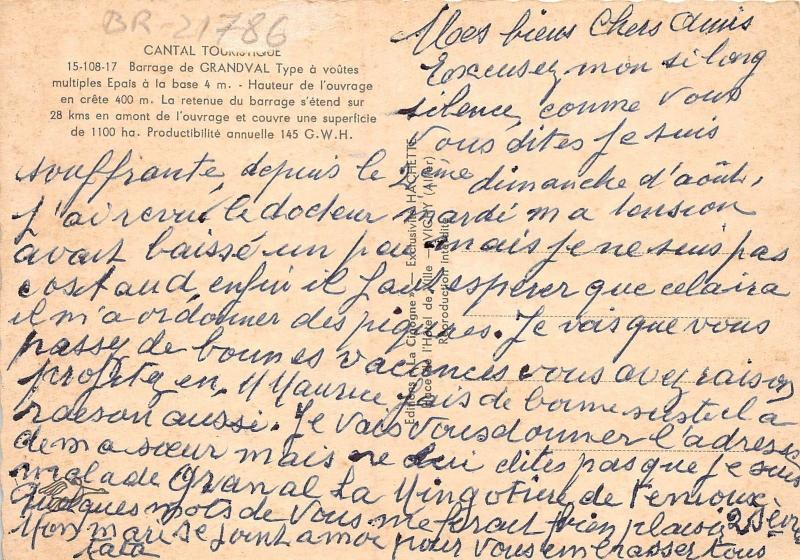 BR-21786
CANTAL TOURISTIQUE
15-108-17 Barrage de GRANDVAL Type à voûtes
multiples Epais à la base 4 m. - Hauteur de l'ouvrage
en crête 400 m. La retenue du barrage s'étend sur
28 kms en amont de l'ouvrage et couvre une superficie
de 1100 ha. Productibilité annuelle 145 G.W.H.
Editions « La Cigogne » — Exclusivité HACHETTE
Place de l'Hôtel de Ville — VICHY (Allier)
Reproduction Interdite
Mes biens Chers amis
Excusez mon si long
silence, comme vous
vous dites je suis
souffrante depuis le 2ème dimanche d'août,
J'ai revu le docteur mardi ma tension
avait baissé un peu mais je ne suis pas
costaud enfin il faut esperer que cela ira
il m'a ordonner des piqures. Je vois que vous
passez de bonnes vacances vous avez raison
profitez en, Maurice fais de bonne sieste il a
raeson aussi. Je vais vous donner l'adresse
de ma sœur mais ne lui dites pas que je suis
malade Granal La
Quelques mots de vous me ferait bien plaisir 2 Sèvres
Mon mari se joint a moi pour vous embrasser tous
Tata